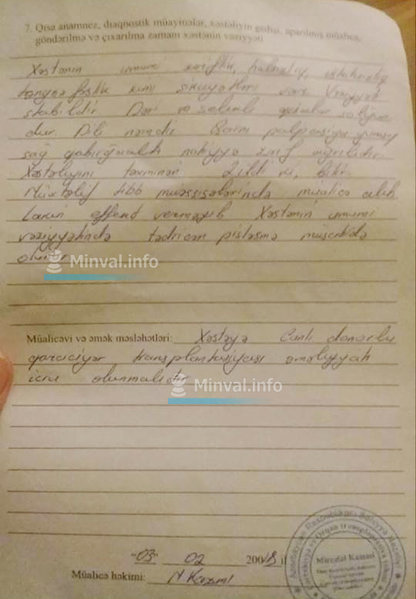 7. Qısa anamnez, diaqnostik müayinələr, xəstəliyin gedişi, aparılmış müalicə,
göndərilmə və çıxarılma zamanı xəstənin vəziyyəti
Xəstənin ümumi zəiflik, halsızlıq, iştahasızlıq
təngnəfəslik kimi şikayətləri var. Vəziyyəti
stabildir. Dəri və selikli qişalar
dur. Dili nəmdir. Qarın palpasiyaya yumşaq
sağ qabırğaaltı nahiyyə zəif ağrılıdır.
Xəstəliyini təxminən 2 ildi ki, bilir.
Müxtəlif tibb müəssisələrində müalicə alıb
Lakin effend verməyib. Xəstənin ümumi
vəziyyətində tədricən pisləşmə müşahidə
olunur.
Minval.info
Müalicəvi və əmək məsləhətləri: Xəstəyə Canlı donorlu
qaraciyər transplantasiyası əməliyyatı
icra olunmalıdır
Minval.info
"03" 02 200
Müalicə həkimi: N Kazımi